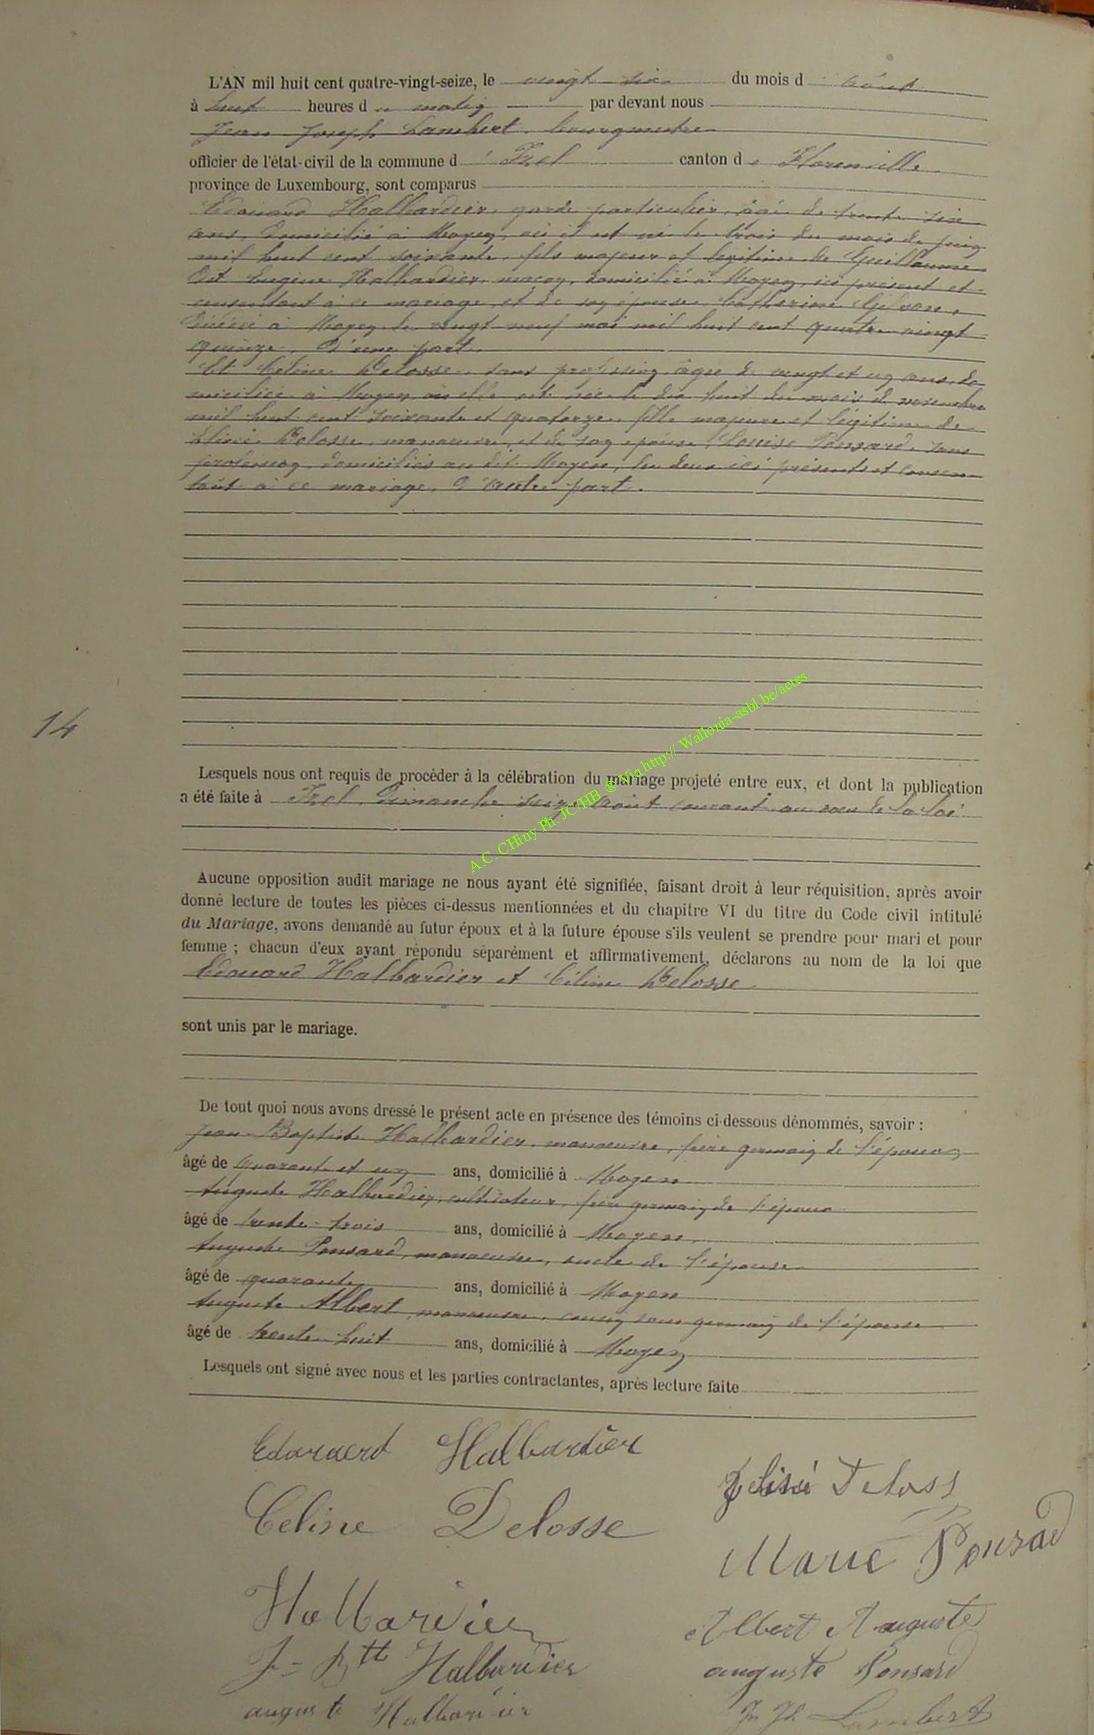 L'AN mil huit cent quatre-vingt-seize, le vingt six du mois d'août
à huit heures du matin par devant nous
Jean Joseph Lambert, bourgmestre
officier de l'état-civil de la commune d'Izel canton de Florenville
province de Luxembourg, sont comparus
Edouard Halbardier, garde particulier, âgé de trente six
ans, domicilié à Moyen, où il est né le trois du mois de juin
mil huit cent soixante, fils majeur et légitime de Guillaume
dit Eugène Halbardier, maçon, domicilié à Moyen, ici présent et
consentant à ce mariage, et de son épouse, Catherine Gilson,
décédée à Moyen le vingt neuf mai mil huit cent quatre vingt
quinze, d'une part.
Et Céline Delosse, sans profession, âgée de vingt et un ans, do-
miciliée à Moyen où elle est née le dix huit du mois de novembre
mil huit cent soixante et quatorze, fille majeure et légitime de
Delosse, manoeuvre, et de son épouse, Louise Ponsard, sans
profession, domiciliés au dit Moyen, les deux ici présents et consen-
tant à ce mariage, d'autre part.
14
Lesquels nous ont requis de procéder à la célébration du mariage projeté entre eux, et dont la publication
a été faite à Izel, Dimanche seize août courant au vœu de la loi
A.C. CHiny Ph JC HB @ via http:// Wallonia-asbl.be/actes
Aucune opposition audit mariage ne nous ayant été signifiée, faisant droit à leur réquisition, après avoir
donné lecture de toutes les pièces ci-dessus mentionnées et du chapitre VI du titre du Code civil intitulé
du Mariage, avons demandé au futur époux et à la future épouse s'ils veulent se prendre pour mari et pour
femme ; chacun d'eux ayant répondu séparément et affirmativement, déclarons au nom de la loi que
Edouard Halbardier et Céline Delosse
sont unis par le mariage.
De tout quoi nous avons dressé le présent acte en présence des témoins ci-dessous dénommés, savoir :
Jean-Baptiste Halbardier, manoeuvre, frère germain de l'époux
âgé de quarante et un ans, domicilié à Moyen
Auguste Halbardier, cultivateur, frère germain de l'époux
âgé de trente-trois ans, domicilié à Moyen
Auguste Ponsard, manoeuvre, oncle de l'épouse
âgé de quarante ans, domicilié à Moyen
Auguste Albert, manoeuvre, cousin sous germain de l'épouse
âgé de trente huit ans, domicilié à Moyen
Lesquels ont signé avec nous et les parties contractantes, après lecture faite
Edouard Halbardier
Deloss
Celine Delosse
Marie Ponsard
Halbardier
Albert Auguste
J-Btt Halbardier
auguste Ponsard
auguste Halbardier
Jn Jh Lambert